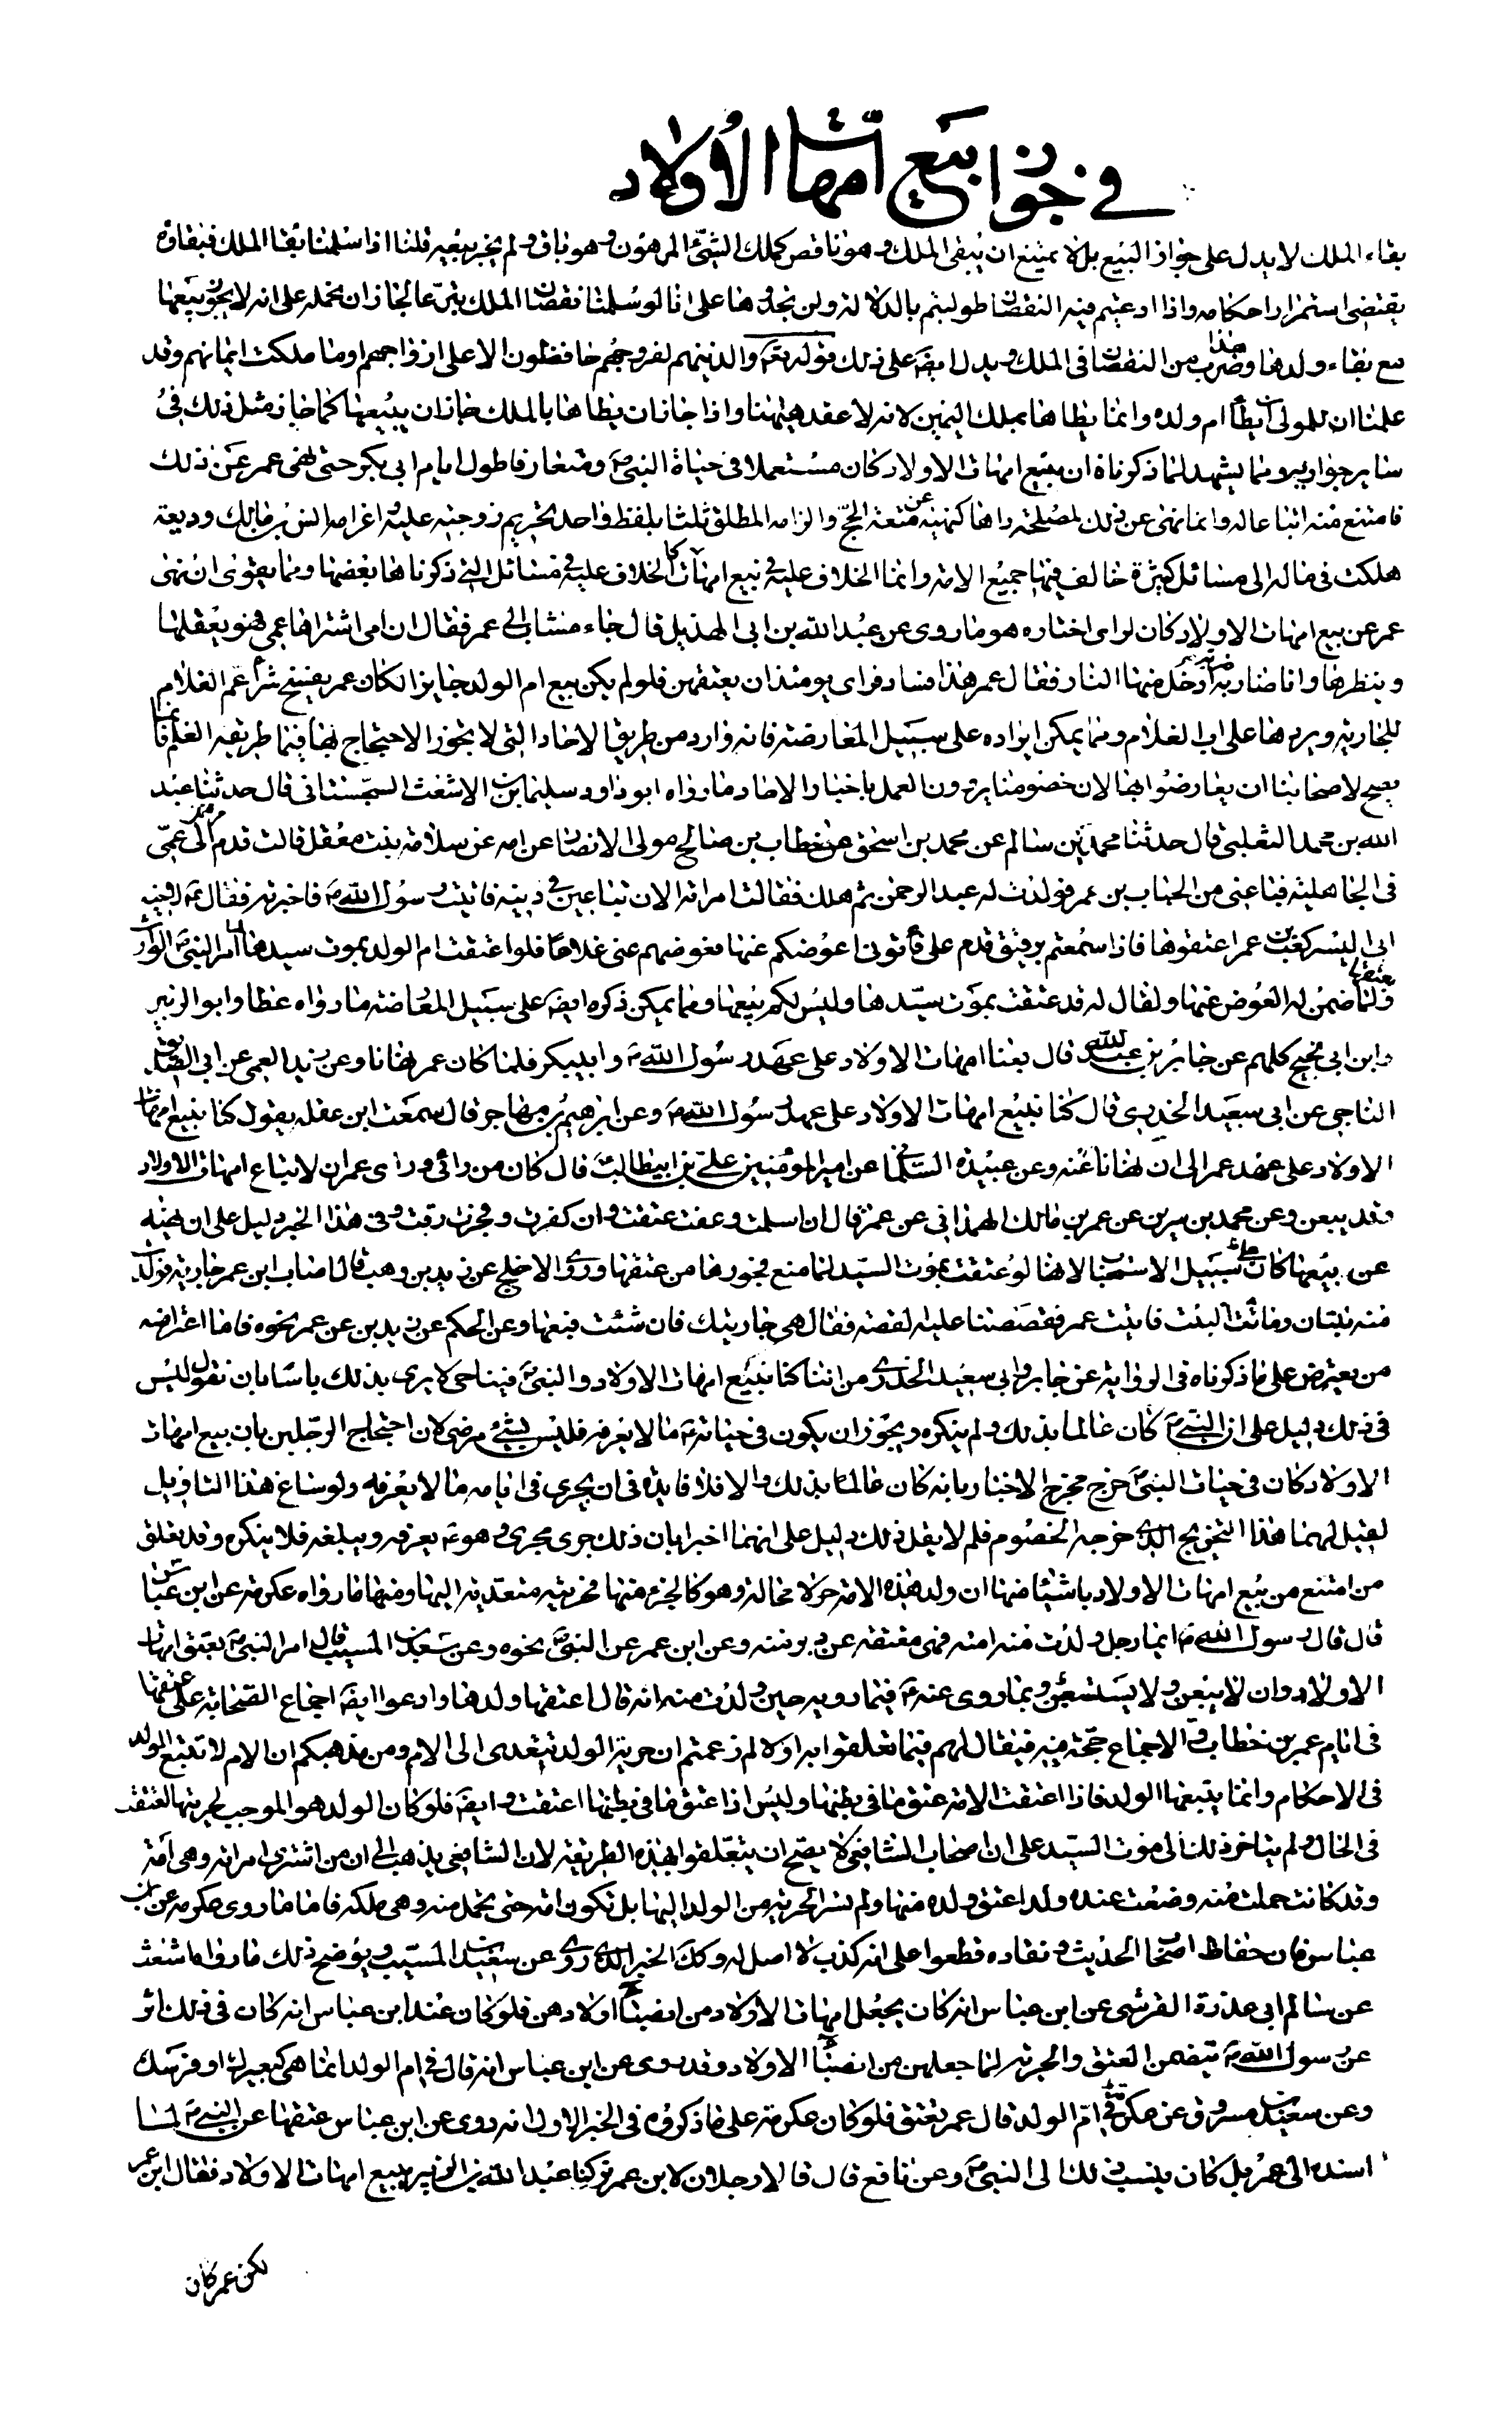 في جواز بيع امهات الأولاد
بقاء الملك لا يدل على جواز البيع بل لا يمتنع ان يبقى الملك وهو ناقص كملك الشئ المرهون وهو باق ولم يجز بيعه قلنا اذا سلمنا بقا الملك فبقاؤه
يقتضي استمرار احكامه واذا ادعيتم فيه النقصان طولبتم بالدلالة ولن تجدوها على انا لو سلمنا نقصان الملك تبرعا لجاز ان نحمله على انه لا يجوز بيعها
مع بقاء ولدها وهذا ضرب من النقصان في الملك ويدل ايضَ على ذلك قوله تعَ والذين هم لفروجهم حافظون الا على ازواجهم او ما ملكت ايمانهم وقد
علمنا ان للمولى ان يطأ ام ولده وانما يطاها بملك اليمين لانه لا عقد هيهنا واذا جاز ان يطاها بالملك جاز ان يبيعها كما جاز مثل ذلك في
ساير جواريه ومما يشهد لما ذكرناه ان بيع امهات الاولاد كان مستعملا في حياة النبي ص ومتعارفا طول ايام ابي بكر حتى نهى عمر عن ذلك
فامتنع منه اتباعا له وانما نهى عن ذلك لمصلحة راها كنهيه عن متعة الحج والزامه المطلق ثلثا بلفظ واحد تحريم زوجته عليه واغرامه انس بن مالك وديعة
هلكت في ماله الى مسائل كثيرة خالف فيها جميع الامة وانما الخلاف عليه في بيع امهات كالخلاف عليه في مسائل التي ذكرناها بعضها ومما يقوى ان نهى
عمر عن بيع امهات الاولاد كان لراى اختاره هو ما روى عن عبد الله بن ابي الهذيل قال جاء منشاب الى عمر فقال ان امى اشتراها عمي فهو يعقلها
وينظرها وانا ضاربه ضربة ادخل منها النار فقال عمر هذا فساد فراى يومئذ ان يعتقهن فلو لم يكن بيع ام الولد جايزا لكان عمر يفسخ شرأ عم الغلام
للجارية ويردها على اب الغلام ومما يمكن ايراده على سبيل المعارضة فانه وارد من طريق الاحاد التي لا يجوز الاحتجاج بها فيما طريقه العلم فانما
يصح لاصحابنا ان يعارضوا بها لان خصومنا يرون العمل باخبار الاحاد ما رواه ابو داود سليمان بن الاشعث السجستاني قال حدثنا عبد
الله بن محمد الثعلبي قال حدثنا محمد بن سالم عن محمد بن اسحق عن خطاب بن صالح مولى الانصار عن امه عن سلامة بنت معقل قالت قدم بى عمى
في الجاهلية فباعني من الحباب بن عمر فولدت له عبد الرحمن ثم هلك فقالت امراته الان تباعين في دينه فاتيت رسول الله ص فاخبرته فقال ص لاخيه
ابي اليسر كعب بن عمر اعتقوها فاذا سمعتم برقيق قدم على فأتوني اعوضكم عنها فعوضهم عني غلاما فلو اعتقت ام الولد بموت سيدها لما امر النبي ص الوارث
بعتقها ولما ضمن له العوض عنها ولقال له قد عتقت بموت سيدها وليس لكم بيعها ومما يمكن ذكره ايضَ على سبيل المعارضة ما رواه عطا وابو الزبير
وابن ابي نجيح كلهم عن جابر بن عبد الله قال بعنا امهات الاولاد على عهد رسول الله ص وابي بكر فلما كان عمر نهانا وعن زيد العمى عن ابي الصديق
الناجي عن ابي سعيد الخدري قال كنا نبيع امهات الاولاد على عهد رسول الله ص وعن ابرهيم بن مهاجر قال سمعت ابن عقله يقول كنا نبيع امهات
الاولاد على عهد عمر الى ان نهانا عنه وعن عبيدة السلمانى عن امير المؤمنين علي بن ابيطالب ع قال كان من رائى وراى عمر ان لا تباع امهات الاولاد
وقد يبعن وعن محمد بن سيرين عن عمر بن مالك الهمذاني عن عمر قال ان اسلمت وعفت عتقت وان كفرت وفجرت رقت وفي هذا الخبر دليل على ان نهيه
عن بيعها كان على سبيل الاستحباب لانها لو عتقت بموت السيد لما منع فجورها من عتقها وروى الاجلح عن زيد بن وهب قال اصاب ابن عمر جارية فولدت
منه بنتان وماتت البنت فاتيت عمر فقصصنا عليه القصة فقال هي جاريتك فان شئت فبعها وعن الحكم عن زيد بن عن عمر نحوه فاما اعتراض
من يعترض على ما ذكرناه في الرواية عن جابر وابي سعيد الخدري من اننا كنا نبيع امهات الاولاد والنبي ص فينا حي لا يرى بذلك باسا بان نقول ليس
في ذلك دليل على ان النبي ص كان عالما بذلك ولم ينكره ويجوز ان يكون في حياته ص ما لا يعرفه فليس بشئ مرضي لان احتجاج الرجلين بان بيع امهات
الاولاد كان في حيات النبي ص خرج مخرج الاخبار بانه كان عالما بذلك والا فلا فايدة في ان يجرى في ايامه ما لا يعرفه ولو ساغ هذا التاويل
لقيل لهما هذا التخريج الذي خرجه الخصوم فلم لا يقل ذلك دليل على انهما اخبرا بان ذلك جرى مجرى وهو ص يعرفه ويبلغه فلا ينكره وقد تعلق
من امتنع من بيع امهات الاولاد باشيا منها ان ولد هذه الامة حر لا محالة وهو كالجزء منها فحريته متعدية اليها ومنها ما رواه عكرمة عن ابن عباس
قال قال رسول الله ص ايما رجل ولدت منه امته فهي معتقة عن دبر منه وعن ابن عمر عن النبي ص نحوه وعن سعيد بن المسيب قال امر النبي ص بعتق امهات
الاولاد وان لا يبعن ولا يستسعين وبما روى عنه ص فيما رويه حين ولدت منه انه قال اعتقها ولدها وادعوا ايضَ اجماع الصحابة على عتقها
في ايام عمر بن خطاب والاجماع حجة فيه فيقال لهم فيما تعلقوا به اولا لم زعمتم ان حرية الولد تتعدى الى الام ومن مذهبكم ان الام لا تتبع الولد
في الاحكام وانما يتبعها الولد فاذا اعتقت الامة عتق ما في بطنها وليس اذا عتق ما في بطنها اعتقت وايضَ فلو كان الولد هو الموجب لحريتها لعتقت
في الحال ولم يتاخر ذلك الى موت السيد على ان اصحاب الشافعي لا يصح ان يتعلقوا بهذه الطريقة لان الشافعي يذهب الى ان من اشترى امراته وهي امة
وقد كانت حملت منه وضعت عنده ولدا عتق ولده منها ولم تسر الحرية من الولد اليها بل تكون امة حتى تحمل منه وهي ملكه فاما ما روى عكرمة عن ابن
عباس فان حفاظ اصحاب الحديث ونقاده قطعوا على انه كذب لا اصل له وكذ الخبر الذي روى عن سعيد بن المسيب ويوضح ذلك ما رواه اشعث
عن سالم ابي عذرة القرشي عن ابن عباس انه كان يجعل امهات الاولاد من انصباء اولادهن فلو كان عند ابن عباس انه كان في ذلك اثر
عن رسول الله ص يتضمن العتق والحرية لما جعلهن من انصباء الاولاد وقد روى عن ابن عباس انه قال في ام الولد انما هي كبعيرك او فرسك
وعن سعيد بن مسروق عن عكرمة في ام الولد قال عمر تعتق فلو كان عكرمة على ما ذكروه في الخبر الاول انه روى عن ابن عباس عتقها عن النبي ص لما
اسنده الى عمر بل كان ينسب ذلك الى النبي ص وعن نافع قال قالا رجلان لابن عمر تركنا عبد الله بن الزبير يبيع امهات الاولاد فقال ابن عمر
لكن عمر كان